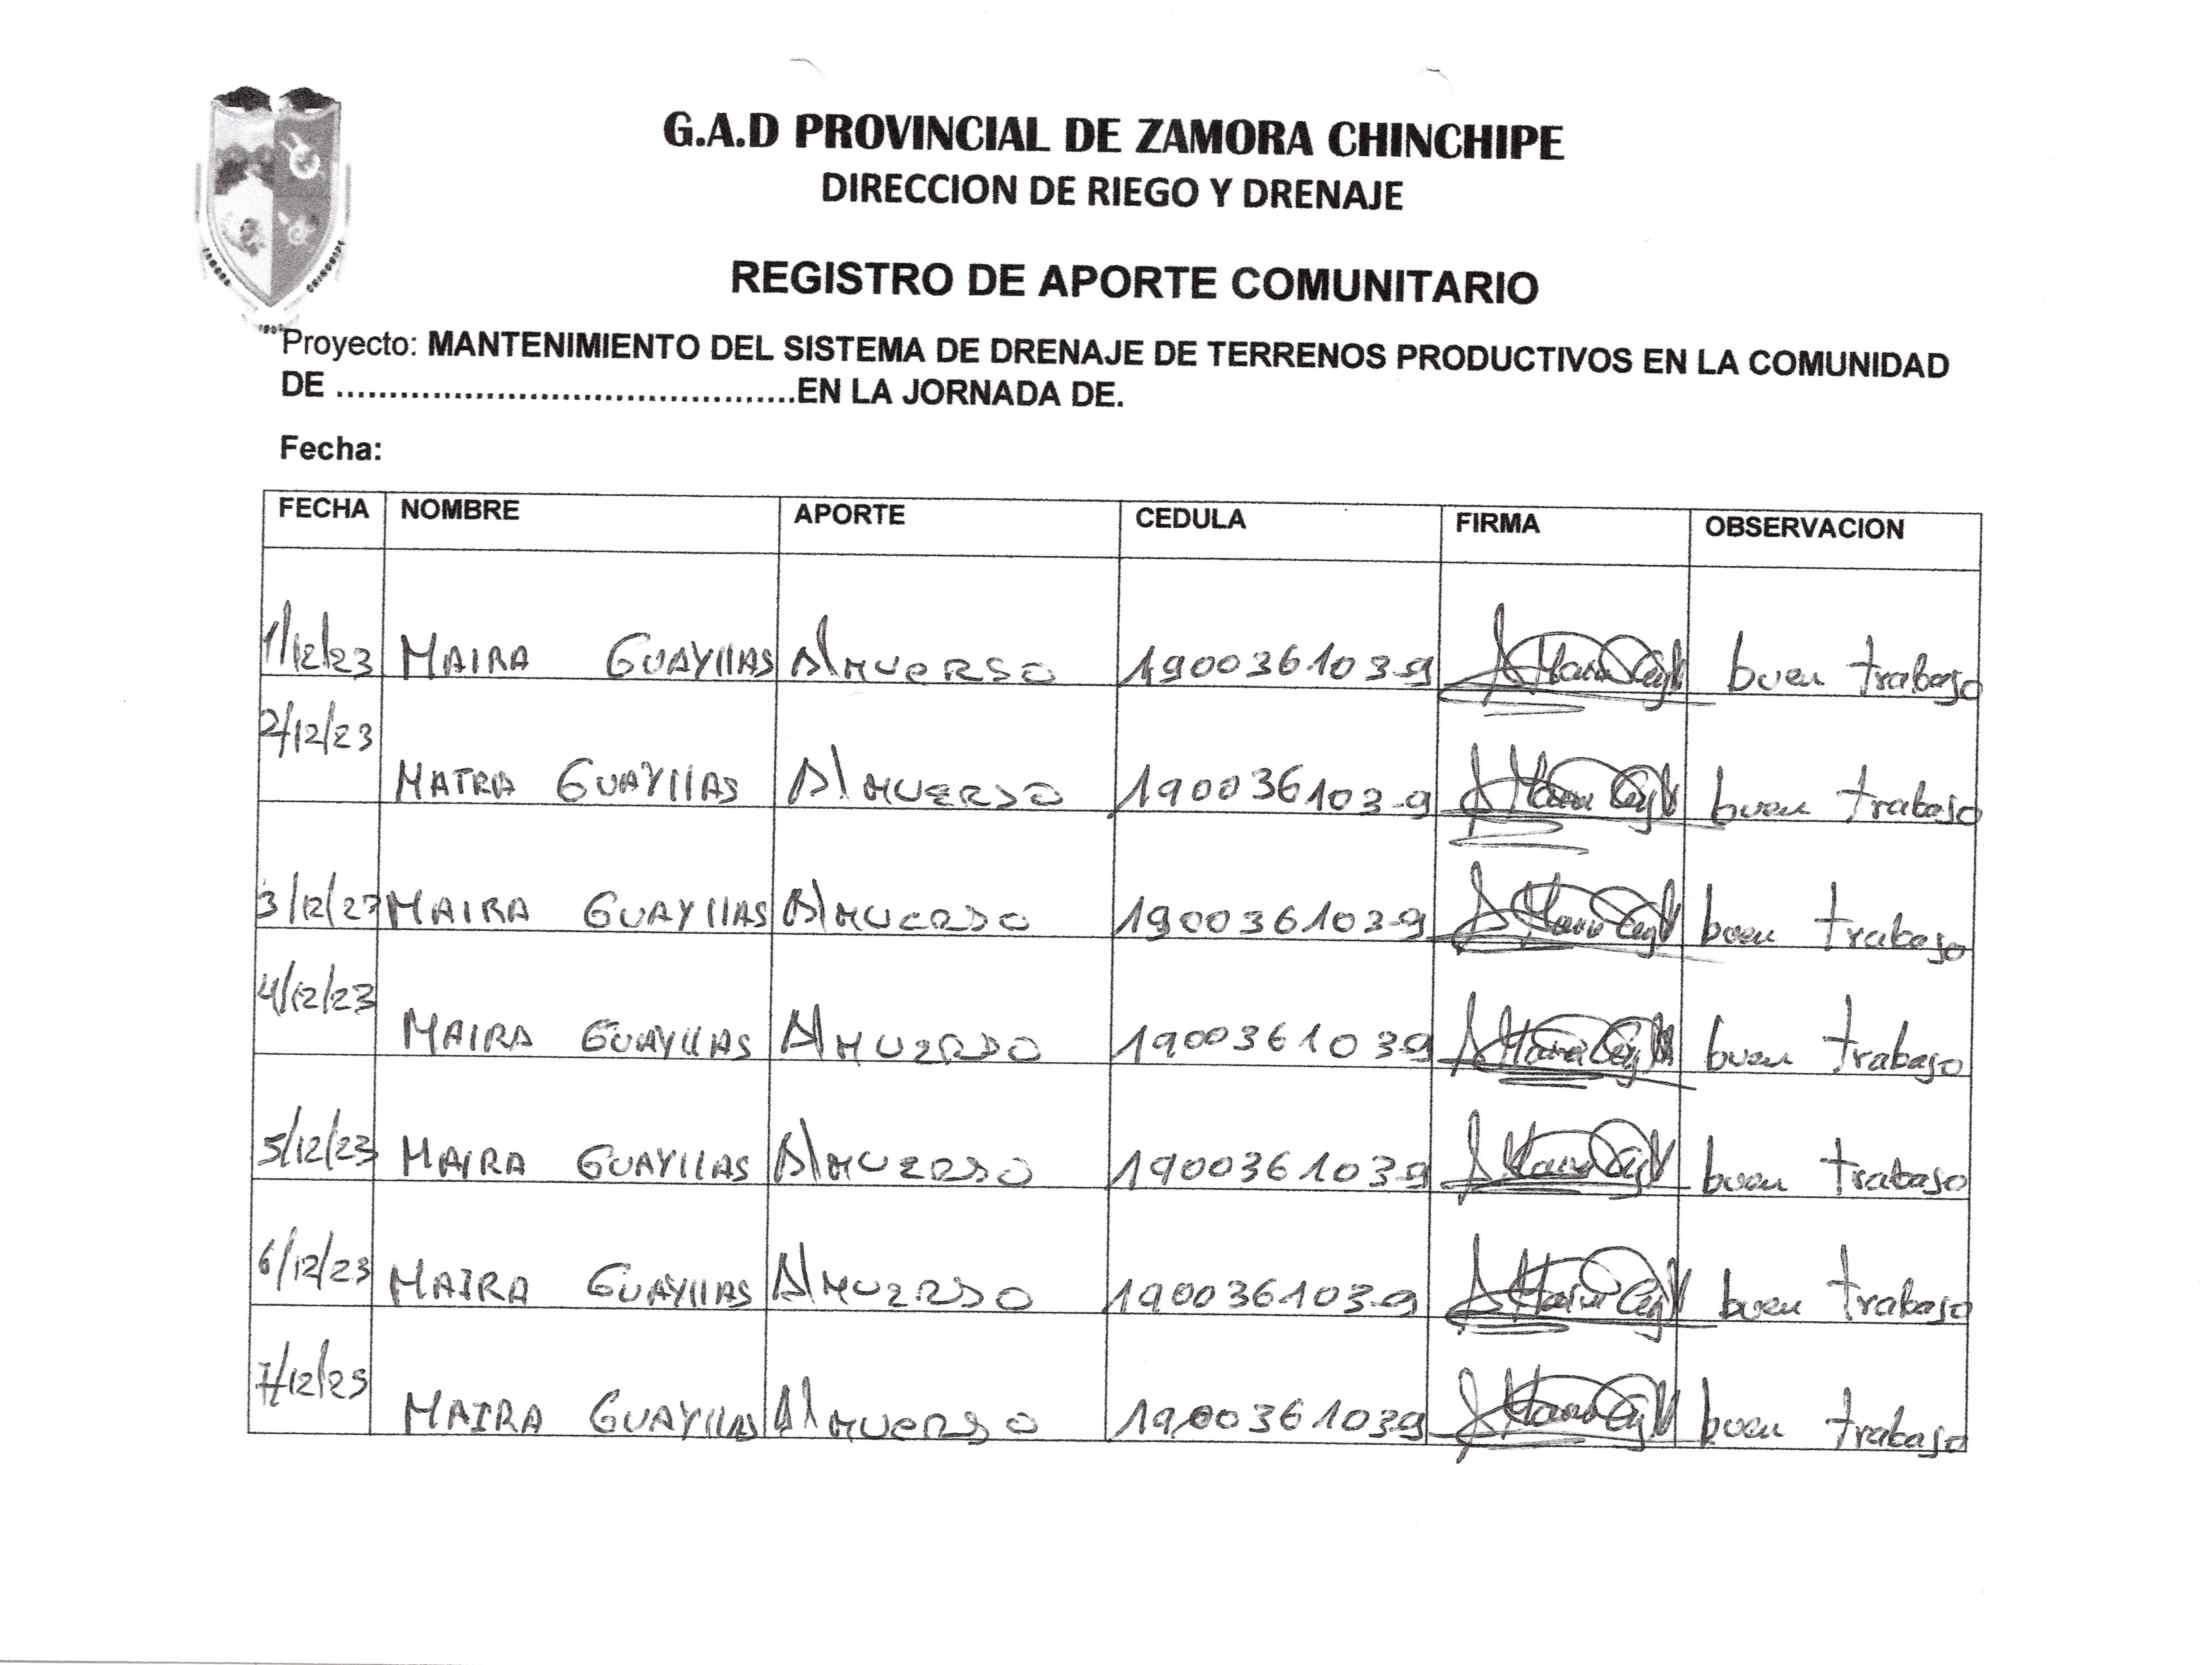 G.A.D PROVINCIAL DE ZAMORA CHINCHIPE
DIRECCION DE RIEGO Y DRENAJE
REGISTRO DE APORTE COMUNITARIO
Proyecto: MANTENIMIENTO DEL SISTEMA DE DRENAJE DE TERRENOS PRODUCTIVOS EN LA COMUNIDAD
DE ............................................EN LA JORNADA DE.
Fecha:
FECHA NOMBRE APORTE CEDULA FIRMA OBSERVACION
1/12/23 MAIRA GUAYllAS AlMUERSO 190036103-9 buen trabajo
2/12/23 MAIRA GUAYllAS AlMUERSO 190036103-9 buen trabajo
3/12/23 MAIRA GUAYllAS AlMUERSO 190036103-9 buen trabajo
4/12/23 MAIRA GUAYllAS AlMUERSO 1900361039 buen trabajo
5/12/23 MAIRA GUAYllAS AlMUERSO 190036103-9 buen trabajo
6/12/23 MAIRA GUAYllAS AlMUERSO 190036103-9 buen trabajo
7/12/23 MAIRA GUAYllAS AlMUERSO 1900361039 buen trabajo